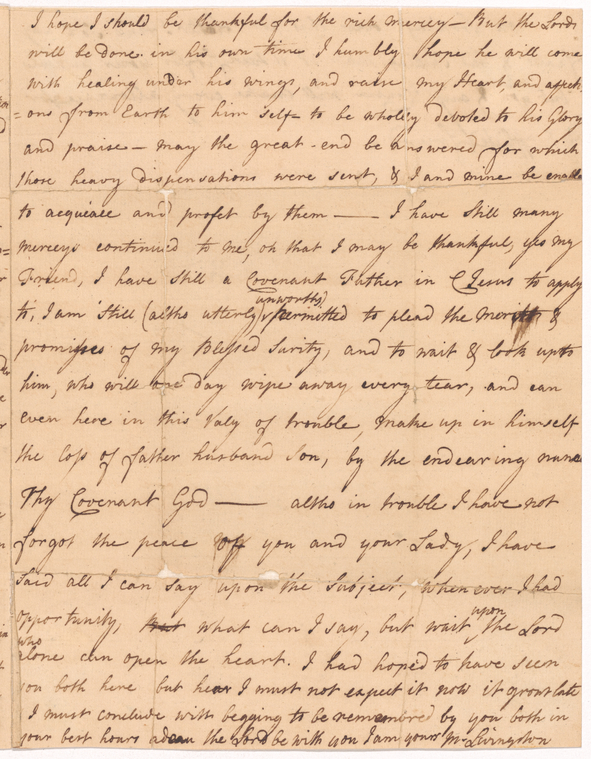 I hope I should be thankful for the rich mercey — But the Lords
will be done in his own time I humbly hope he will come
with healing under his wings, and raise my Heart and affecti
=ons from Earth to him self= to be wholey devoted to his Glory
and praise — may the great end be answered for which
those heavy dispensations were sent, & I and mine be enable
to acquiace and profet by them — I have still many
merceys continued to me, oh that I may be thankful, yes my
Friend, I have still a Covenant Father in C Jesus to apply
to, I am still (altho utterly unworthy) permitted to plead the merits &
promises of my Blessed Surity, and to wait & look upto
him, who will one day wipe away every tear, and can
even here in this Valy of trouble, make up in himself
the loss of father husband Son, by the endearing name
Thy Covenant God — altho in trouble I have not
forgot the peace off you and your Lady, I have
said all I can say upon the Subject, when ever I had
opportunity, what can I say, but wait upon the Lord
who alone can open the heart. I had hoped to have seen
you both here but hear I must not expect it now it grows late
I must conclude with begging to be remembred by you both in
your best hours adeau the Lord be with you I am yours M Livingston